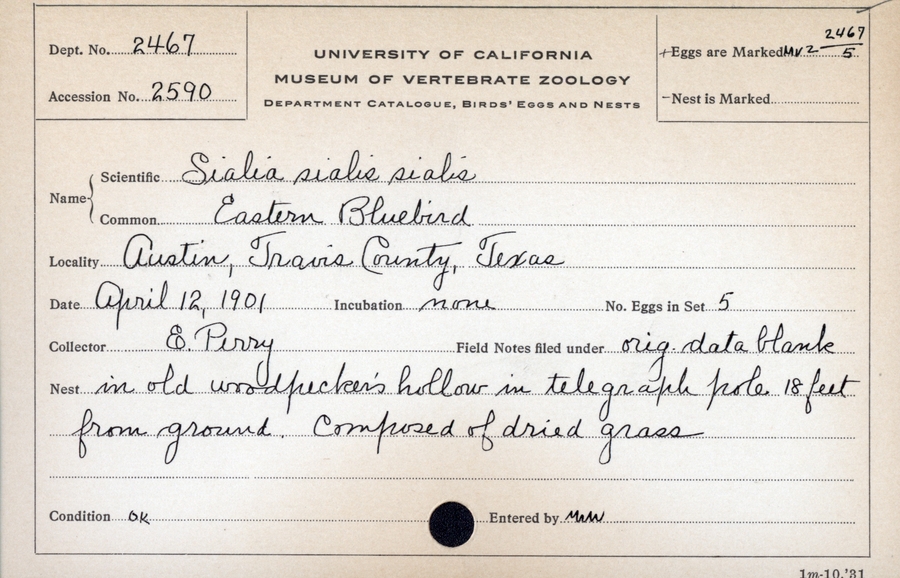 Dept. No. 2467
Accession No. 2590
UNIVERSITY OF CALIFORNIA
MUSEUM OF VERTEBRATE ZOOLOGY
DEPARTMENT CATALOGUE, BIRDS' EGGS AND NESTS
+Eggs are Marked 2467/5
-Nest is Marked
Name
Scientific Sialia sialis sialis
Common Eastern Bluebird
Locality Austin, Travis County, Texas
Date April 12, 1901 Incubation none No. Eggs in Set 5
Collector E. Perry Field Notes filed under orig. data blank
Nest in old woodpecker's hollow in telegraph pole 18 feet
from ground. Composed of dried grass
Condition OK Entered by
1m-10,'31